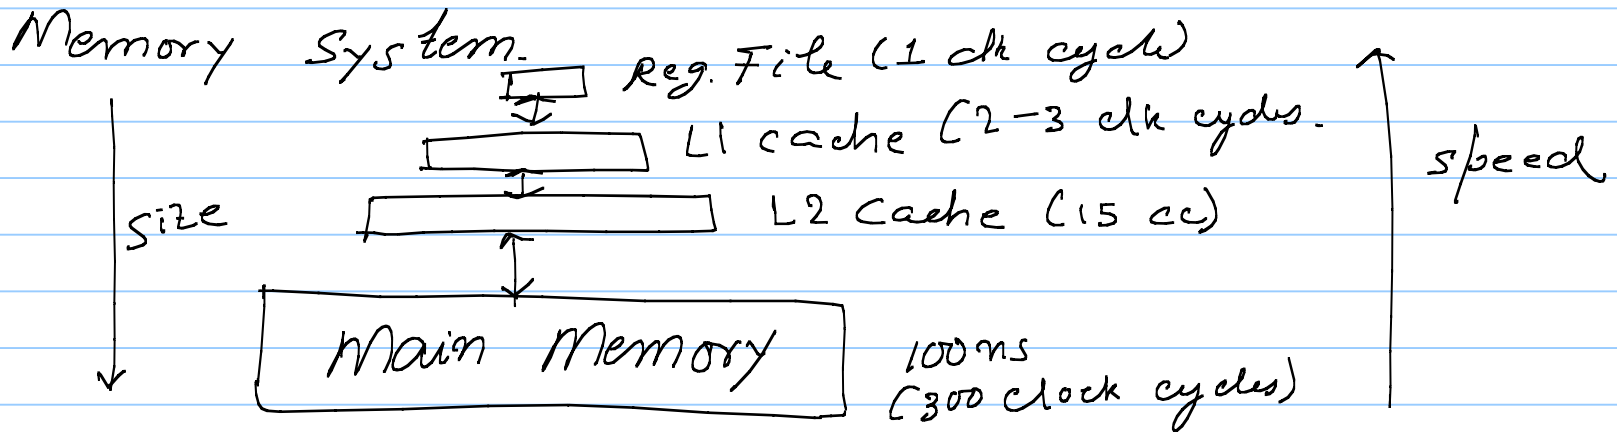 Memory System.
Reg. File (1 clk cycle)
L1 cache (2-3 clk cycles.
speed
size
L2 Cache (15 cc)
Main Memory
100ns
(300 clock cycles)